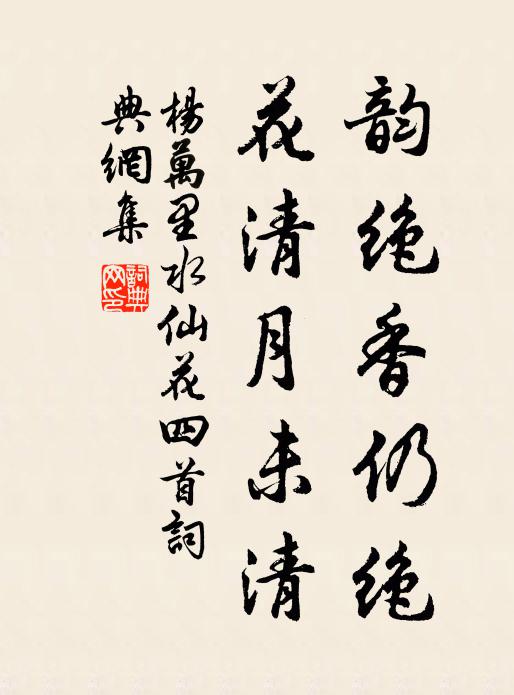 韵绝香仍绝
花清月未清
楊萬里水仙花四首詞
典網集
詞典网印